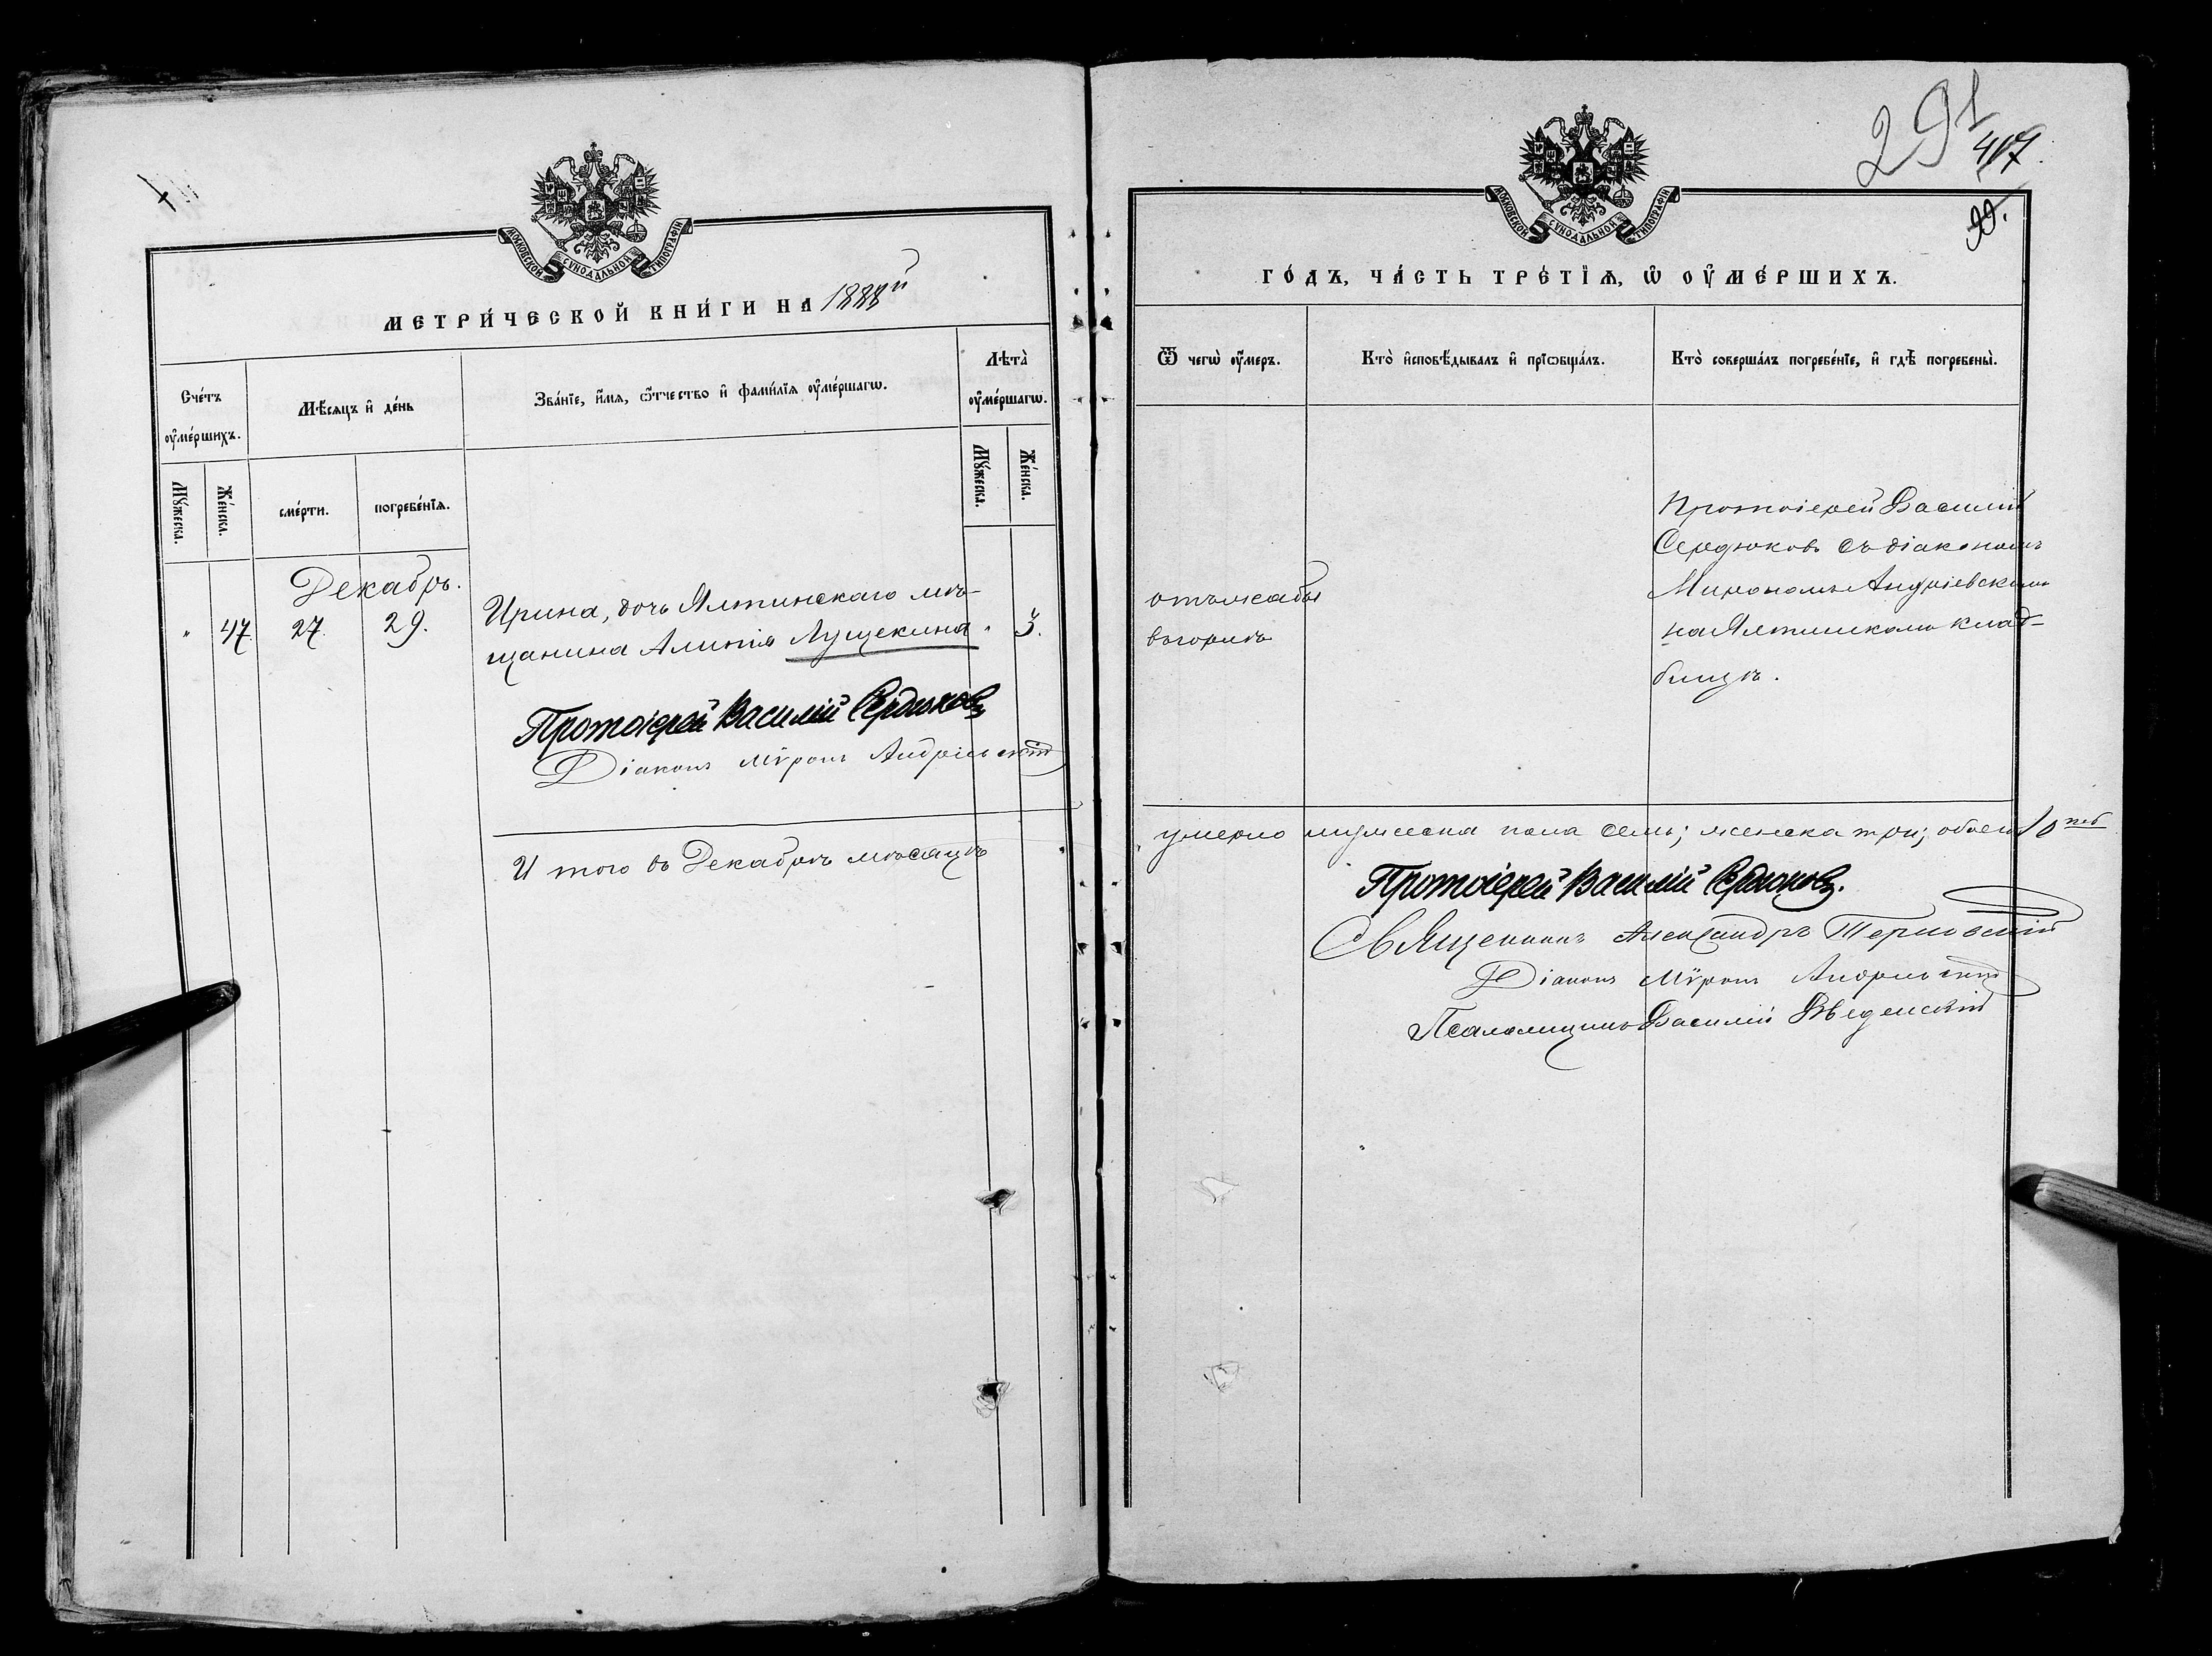 МОСКОВСКОЙ СУНОДАЛЬНОЙ ТИПОГРАФІИ
МЕТРИ́ЧЕСКОЙ КНИ́ГИ НА 1888й
Сче́тъ ᲂу҆ме́ршихъ.
Мѣ́сѧцъ и҆ де́нь
Зва́нїе, и҆́мѧ, ѻ҆́тчество и҆ фамилі́ѧ ᲂу҆ме́ршагѡ.
Лѣта̀ ᲂу҆ме́ршагѡ.
Мꙋ́жеска.
Же́нска.
сме́рти.
погребе́нїѧ.
Мꙋ́жеска.
Же́нска.
Декабрь.
" 47. 27. 29.
Ирина, дочь Ялтинскаго мѣ-
щанина Алипія Лущекина " 3.
Протоіерей Василій Сердюковъ
Діаконъ Мѵронъ Андріевскій
И того въ Декабрѣ мѣсяцѣ
291
417.
99.
МОСКОВСКОЙ СУНОДАЛЬНОЙ ТИПОГРАФІИ
ГО́ДЪ, ЧА́СТЬ ТРЕ́ТЇѦ, Ѡ҆ ОУ҆МЕ́РШИХЪ.
Ѿ чегѡ̀ ᲂу҆́меръ.
Кто̀ и҆сповѣ́дывалъ и҆ прїѡбща́лъ.
Кто̀ соверша́лъ погребе́нїе, и҆ гдѣ̀ погребены̀.
отъ жабы
въ горлѣ
Протоіерей Василій
Сердюковъ съ діакономъ
Мирономъ Андріевскимъ
на Ялтинскомъ клад-
бищѣ.
умерло мужеска пола семь; женска три; обоего 10ть
Протоіерей Василій Сердюковъ.
Священникъ Александръ Терновскій
Діаконъ Мѵронъ Андріевскій
Псаломщикъ Василій Введенскій